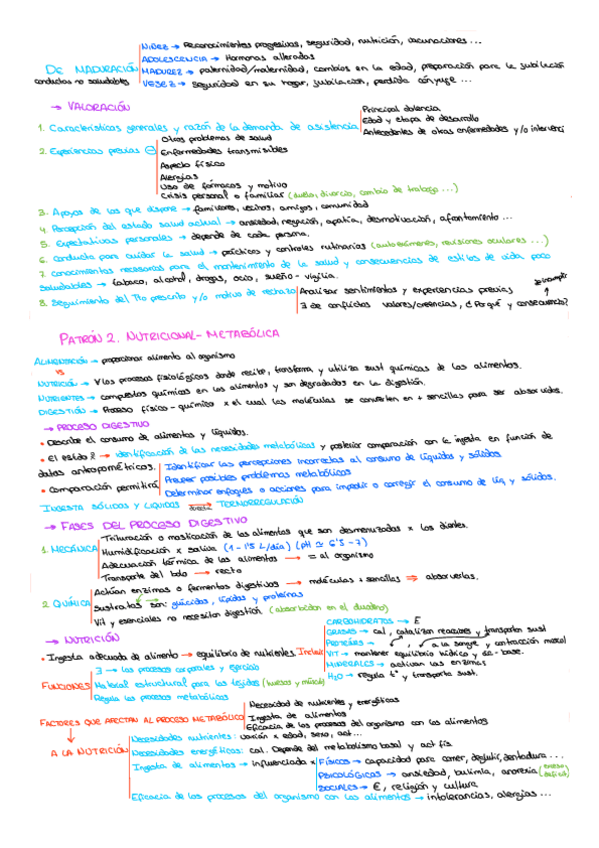 NIÑEZ → Reconocimientos progresivos, seguridad, nutrición, vacunaciones ...
ADOLESCENCIA → Hormonas alteradas
DE MADURACIÓN MADUREZ → paternidad/maternidad, cambios en la edad, preparación para la jubilación
conductas no saludables VEJEZ → seguridad en su hogar, jubilación, perdida cónyuge ...
→ VALORACIÓN
Principal dolencia
1. Características generales y razón de la demanda de asistencia Edad y etapa de desarrollo
Antecedentes de otras enfermedades y/o intervenci
Otros problemas de salud
2. Experiencias previas Enfermedades transmisibles
Aspecto físico
Alergias
Uso de fármacos y motivo
Crisis personal o familiar (duelo, divorcio, cambio de trabajo ...)
3. Apoyos de los que dispone → familiares, vecinos, amigos, comunidad
4. Percepción del estado salud actual → ansiedad, negación, apatía, desmotivación, afrontamiento ...
5. Expectativas personales → depende de cada persona.
6. Conducta para cuidar la salud → prácticas y controles rutinarios (autoexámenes, revisiones oculares ...)
7. Conocimientos necesarios para el mantenimiento de la salud y consecuencias de estilos de vida poco
saludables → tabaco, alcohol, drogas, ocio, sueño - vigilia.
8. Seguimiento del Tto prescrito y/o motivo de rechazo Analizar sentimientos y experiencias previas
∃ de conflictos valores/creencias, ¿Porqué y consecuencia?
PATRÓN 2. NUTRICIONAL-METABÓLICA
ALIMENTACIÓN → proporcionar alimento al organismo
vs
NUTRICIÓN → ∀ los procesos fisiológicos donde recibe, transforma y utiliza sust químicas de los alimentos.
NUTRIENTES → compuestos químicos en los alimentos y son degradados en la digestión.
DIGESTIÓN → Proceso físico-químico x el cual las moléculas se convierten en + sencillas para ser absorvidas.
→ PROCESO DIGESTIVO
• Describe el consumo de alimentos y líquidos.
• El estido identificación de las necesidades metabólicas y posterior comparación con la ingesta en función de
datos antropométricos. Identificar las percepciones incorrectas al consumo de líquidos y sólidos
• Comparación permitirá Prever posibles problemas metabólicos
Determinar enfoques o acciones para impedir o corregir el consumo de líq y sólidos.
INGESTA SÓLIDOS Y LIQUIDOS → TERMORREGULACIÓN
→ FASES DEL PROCESO DIGESTIVO
Trituración o masticación de los alimentos que son desmenuzados x los dientes.
1. MECÁNICA Humidificación x saliva (1 - 1'5 L/día) (pH ≃ 6'5 - 7)
Adecuación térmica de los alimentos → = al organismo
Transporte del bolo → recto
Actúan enzimas o fermentos digestivos → moléculas + sencillas → absorverlas.
2. QUÍMICA sustratos son: glúcidos, lípidos y proteínas
Vit y esenciales no necesitan digestión (absorbidos en el duodeno)
→ NUTRICIÓN
CARBOHIDRATOS → E
GRASAS → cal, catalizan reacciones y transportan sust
PROTEÍNAS → a la sangre y contracción muscul
• Ingesta adecuada de alimento → equilibrio de nutrientes. Incluir VIT → mantener equilibrio hídrico y ác-base.
MINERALES → activan las enzimas
H₂O → regula tª y transporta sust.
∃ → los procesos corporales y ejercicio
FUNCIONES Material estructural para los tejidos (huesos y músculo)
Regula los procesos metabólicos
Necesidad de nutrientes y energéticas
FACTORES QUE AFECTAN AL PROCESO METABÓLICO Ingesta de alimentos
Eficacia de los procesos del organismo con los alimentos
Necesidades nutrientes: varían x edad, sexo, act...
A LA NUTRICIÓN Necesidades energéticas: cal. Depende del metabolismo basal y act fís.
Ingesta de alimentos → influenciada x FÍSICOS → capacidad para comer, deglutir, dentadura ...
PSICOLÓGICAS → ansiedad, bulimia, anorexia (exceso/déficit)
SOCIALES → €, religión y cultura
Eficacia de los procesos del organismo con los alimentos → intolerancias, alergias ...